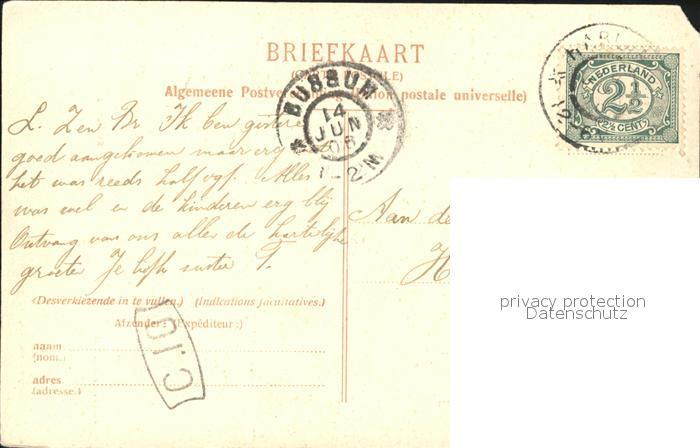 BRIEFKAART
Algemeene Postvereeniging (Union postale universelle)
NEDERLAND
2½
(2½ CENT)
BUSSUM
14
JUN
06
1-2 N
L. Z en Br. Ik ben gisteren
goed aangekomen maar erg
het was reeds half
Alles
was wel en de kinderen erg blij
Ontvang van ons allen de hartelijke
groeten Je zuster T.
Aan de
H
(Desverkiezende in te vullen.) (Indications facultatives.)
Afzender: (Expéditeur:)
naam
(nom.)
adres
(adresse.)
privacy protection
Datenschutz